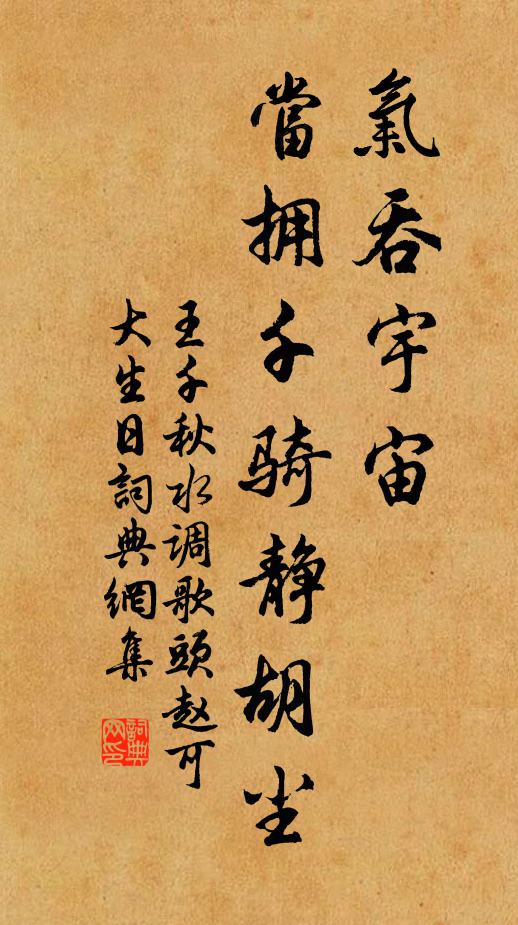 氣吞宇宙
當拥千骑静胡尘
王千秋水调歌頭赵可
大生日詞典網集
詞典
网印